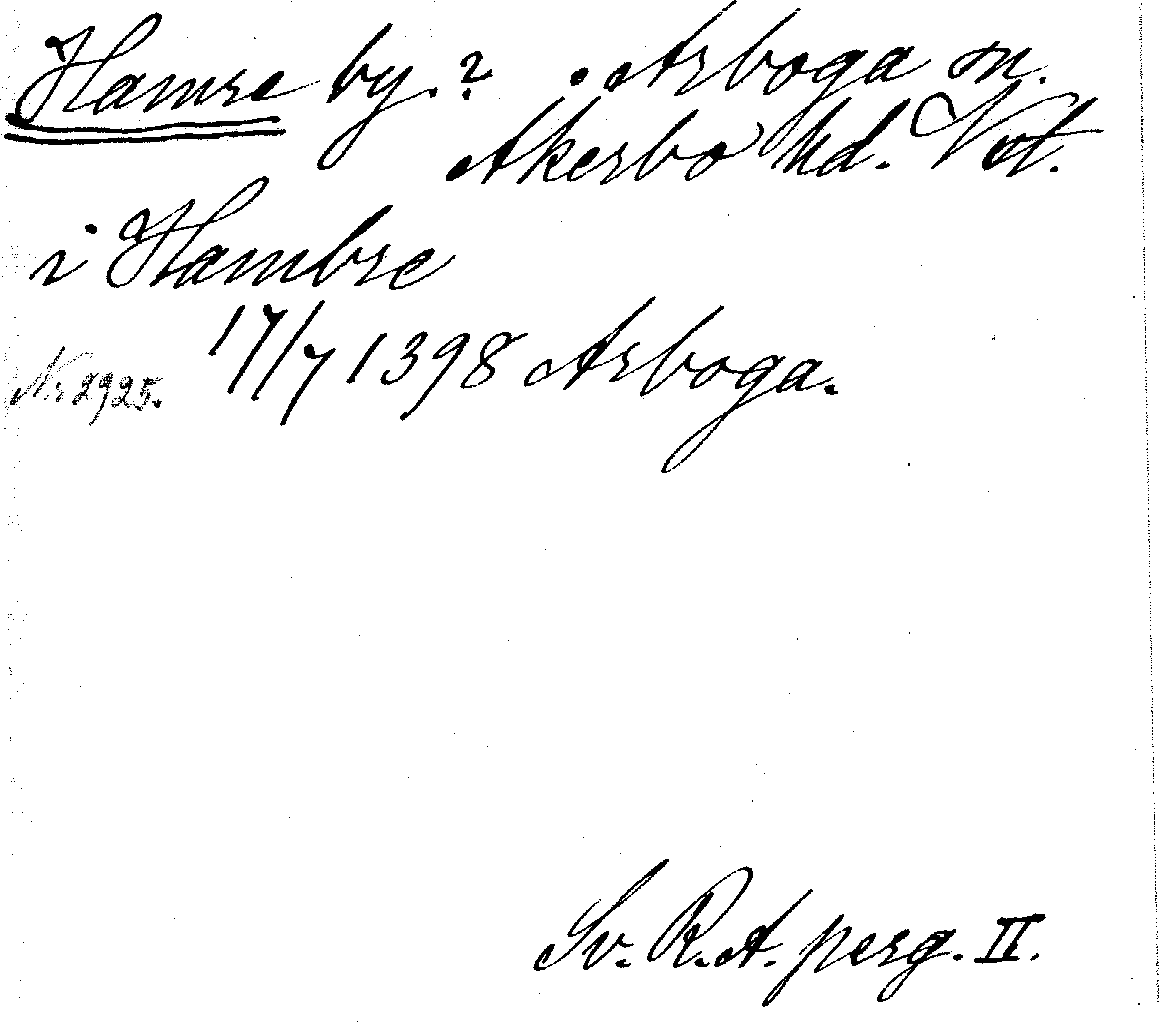 Hamre by.? . Arboga sn.
Åkerbo hd. Vstl.
i Hambre
17/7 1398 Arboga.
Nr 2925.
Sv. R.A. perg. II.